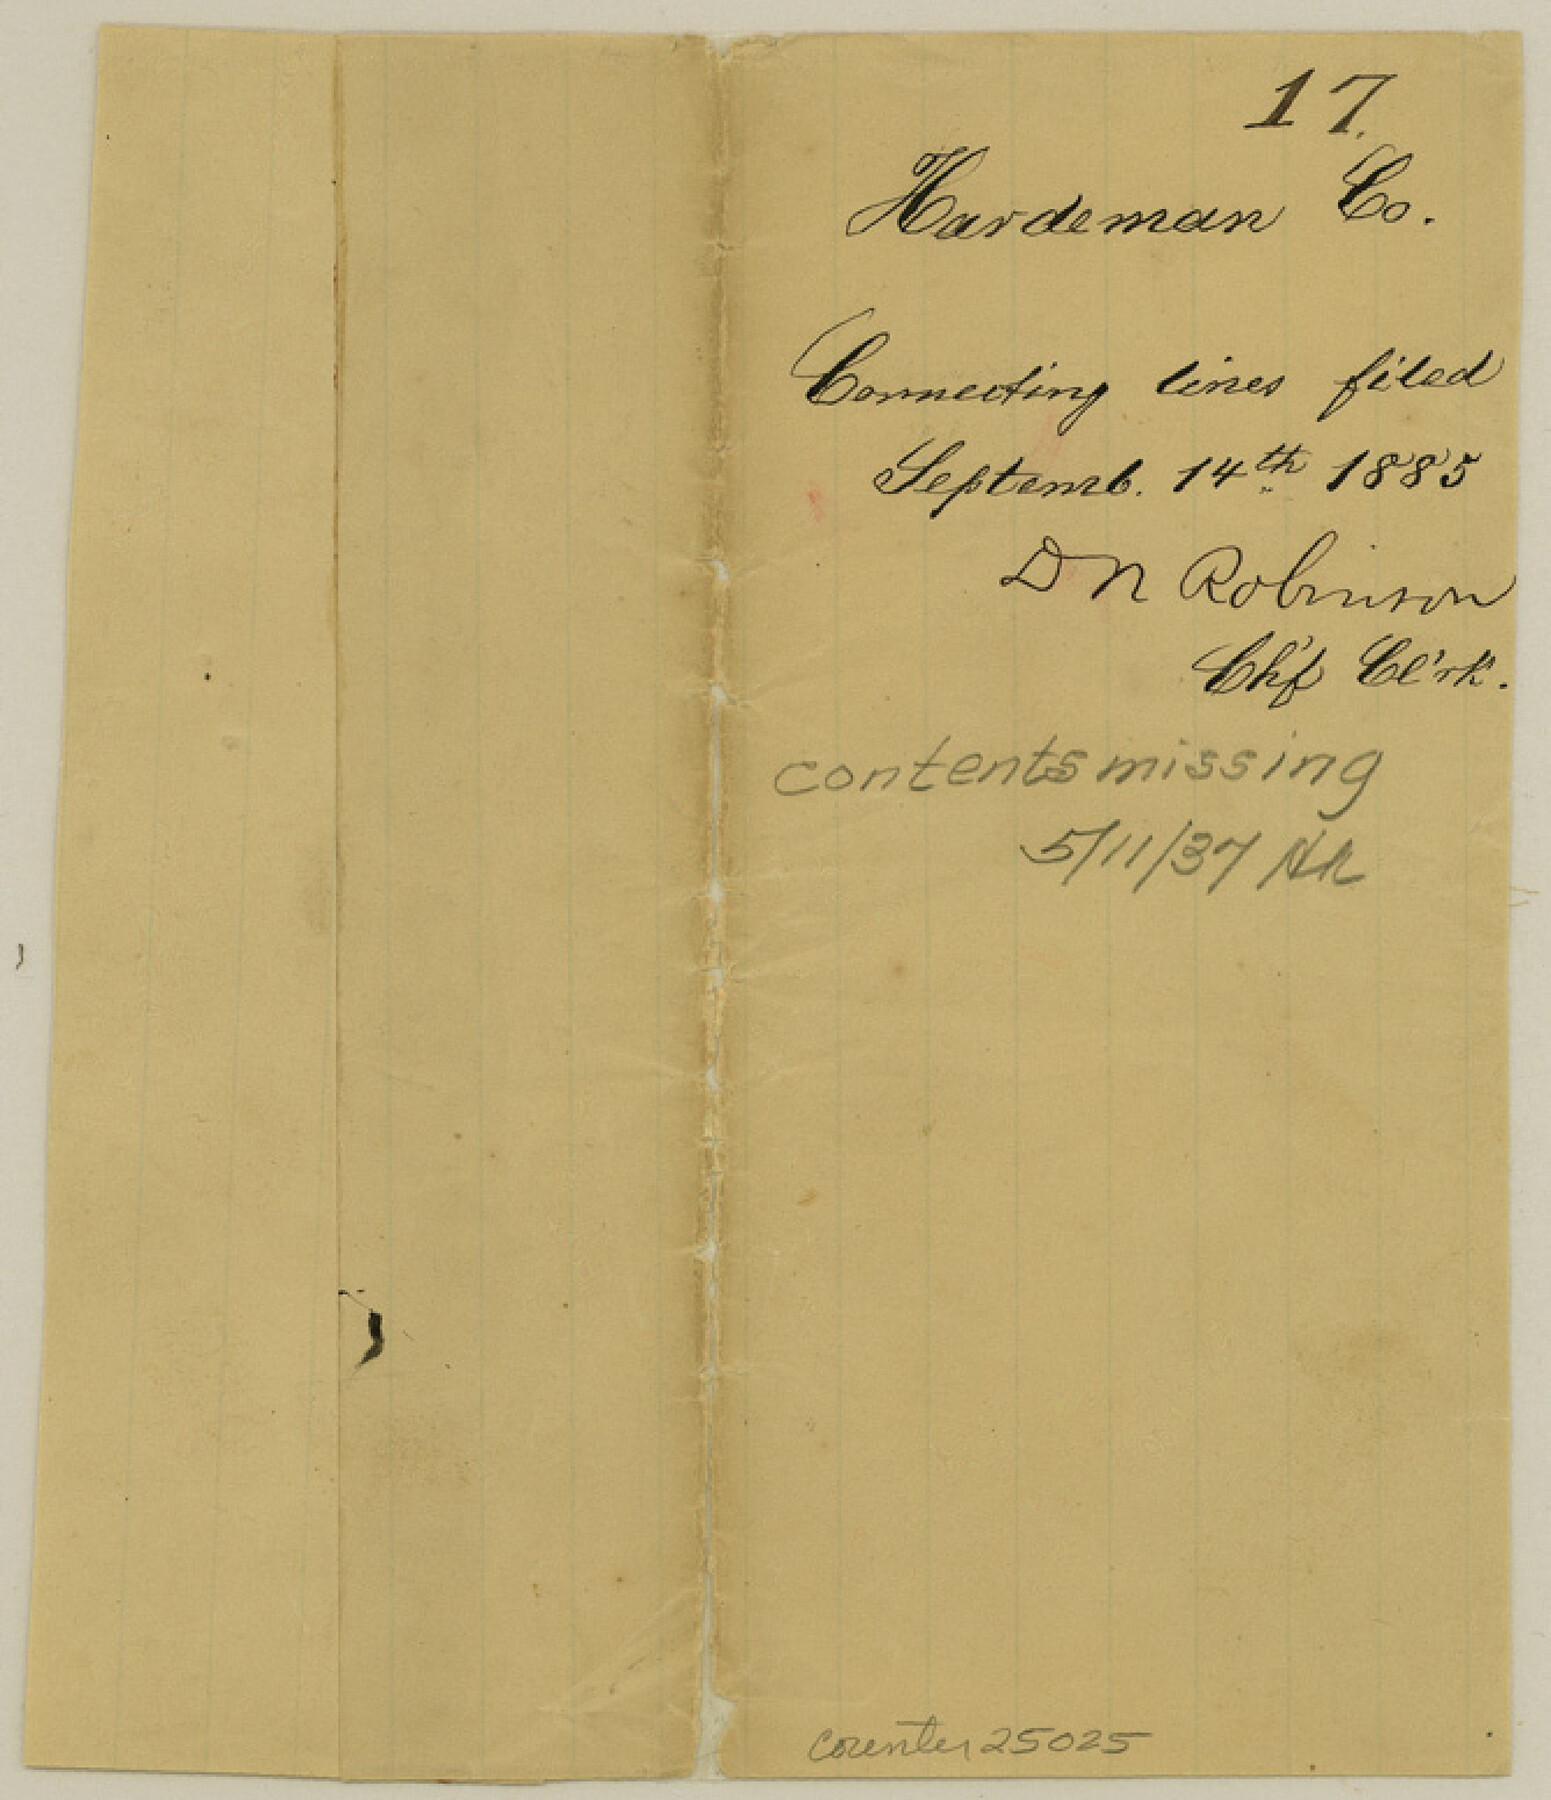 17.
Hardeman Co.
Connecting lines filed
Septemb. 14th 1885
D N Robinson
Ch'f Cl'rk.
contents missing
5/11/37
counter 25025